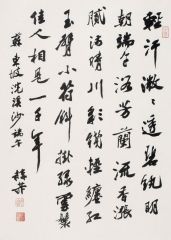 輕汗微微透碧紈明
朝端午浴芳蘭流香漲
膩滿晴川彩線輕纏紅
玉臂小符斜掛綠雲鬟
佳人相見一千年
蘇東坡浣溪沙端午